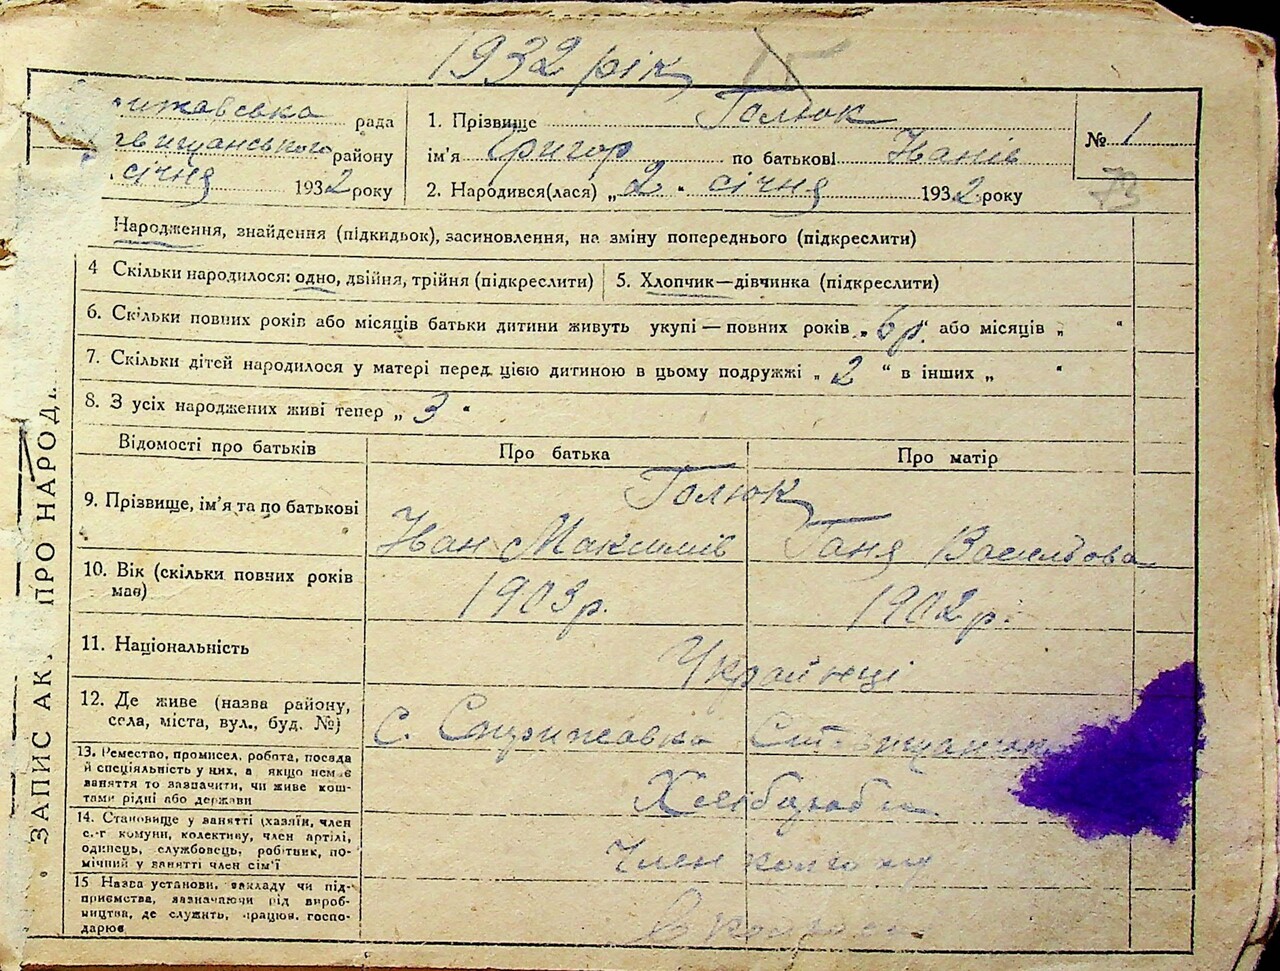 1932 рік
Голюк
рада 1. Прізвище № 1
району ім'я Григор по батькові Іванів
січня 1932 року 2. Народився(лася) „2" січня 1932 року
73
Народження, знайдення (підкидьок), засиновлення, на зміну попереднього (підкреслити)
4 Скільки народилося: одно, двійня, трійня (підкреслити) 5. Хлопчик—дівчинка (підкреслити)
6. Скільки повних років або місяців батьки дитини живуть укупі — повних років „6р." або місяців „ "
7. Скільки дітей народилося у матері перед цією дитиною в цьому подружжі „ 2 " в інших „ "
8. З усіх народжених живі тепер „ 3 "
Відомості про батьків Про батька Про матір
Голюк
9. Прізвище, ім'я та по батькові
Іван Максимів Ганя Васильова
10. Вік (скільки повних років
має) 1903р. 1902р.
11. Національність Українці
12. Де живе (назва району,
села, міста, вул., буд. №) с. Стрижавка
13. Ремество, промисел, робота, посада
й спеціяльність у них, а якщо немає
заняття то зазначити, чи живе кош-
тами рідні або держави
Хлібороби
14. Становище у занятті (хазяїн, член
с.-г комуни, колективу, член артілі,
одинець, службовець, робітник, по-
мічний у занятті член сім'ї
Член колгоспу
15 Назва установи, закладу чи під-
приємства, зазначаючи рід вироб-
ництва, де служить, працює, госпо-
дарює
ЗАПИС АК. ПРО НАРОД